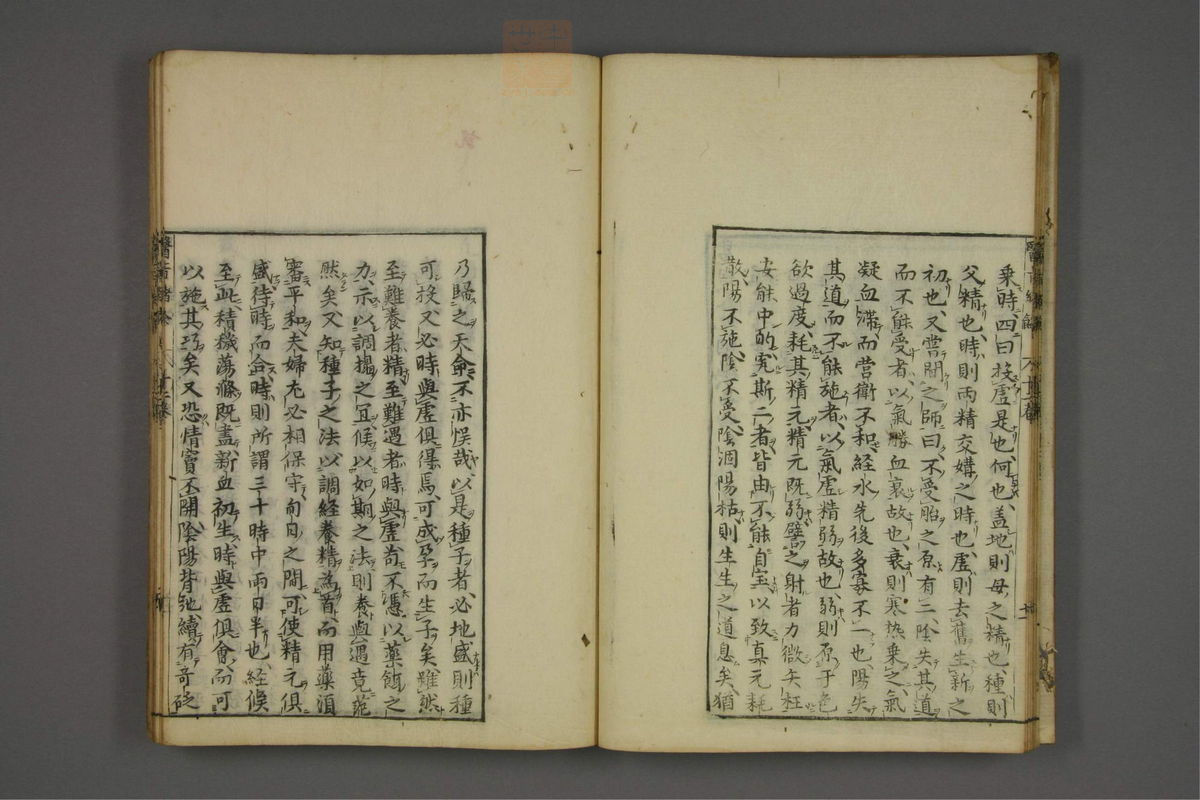 乗時、四曰投虚是也、何也、盖地則母之精也、種則
父精也、時則兩精交媾之時也、虚則去舊生新之
初也、又嘗聞之師曰、不受胎之原有二、陰失其道
而不能受者、以氣勝血衰故也、衰則寒熱乗之、氣
凝血滞、而営衛不和、経水先後多寡不一也、陽失
其道而不能施者、以氣虚精弱故也、弱則原于色
欲過度、耗其精元、精元既弱、譬之射者力微矢枉
安能中的、究斯二者、皆由不能自宝、以致真元耗
散、陽不施、陰不受、陰涸陽枯、則生生之道息矣、猶
乃歸之天命、不亦悞哉、以是種子者、必地盛則種
可投、又必時與虚俱得焉、可成孕而生子矣、雖然
至難養者精、至難遇者時與虚、苟不憑以藥餌之
力、示以調攝之宜、候以如期之法、則養與遇竟茫
然矣、又知種子之法、以調経養精為首、而用藥須
審平和、夫婦尤必相保守、旬日之間、可使精元俱
盛、待時而合、時則所謂三十時中兩日半也、経候
至此、積穢蕩滌既盡、新血初生、時與虚俱會、而可
以施其巧矣、又恐情竇不開、陰陽背馳、續有奇砭